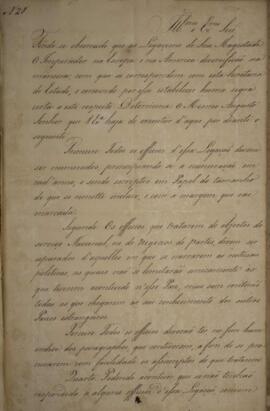 Nº 21
Illmo e Exmo Senr
Tendo se observado que as Legaçoens de Sua Magestade
O Imperador na Europa e na America diversificão na
maneira com que se correspondem com esta Secretaria
de Estado, e convindo por isso estabelecer huma regra
certa a este respeito Determina O Mesmo Augusto
Senhor que V. Exa haja de executar d'aqui por diante o
seguinte.
Primeiro Todos os officios d'essa Legação devem ser
numerados, principiando a numeração em
cada anno, e sendo escriptos em Papel do tamanho
do que se remette incluso, e com a margem que vai
marcada.
Segundo Os officios que tratarem de objectos do
serviço Nacional, ou de negocios de partes, devem ser
separados d'aquelles em que se narrarem as noticias
politicas, as quaes não se limitarão unicamente ás
que tiverem acontecido n'esse Paiz, mas
todas as que chegarem ao seu conhecimento dos outros
Paizes estrangeiros.
Terceiro Todos os officios deverão ter no fim hum
indice dos paragraphos que contiverem, a fim de se pro-
curarem com facilidade os assumptos de que tratarem
Quarto Podendo acontecer que se não tenhão
respondido a alguns officios d'essa Legação, convem